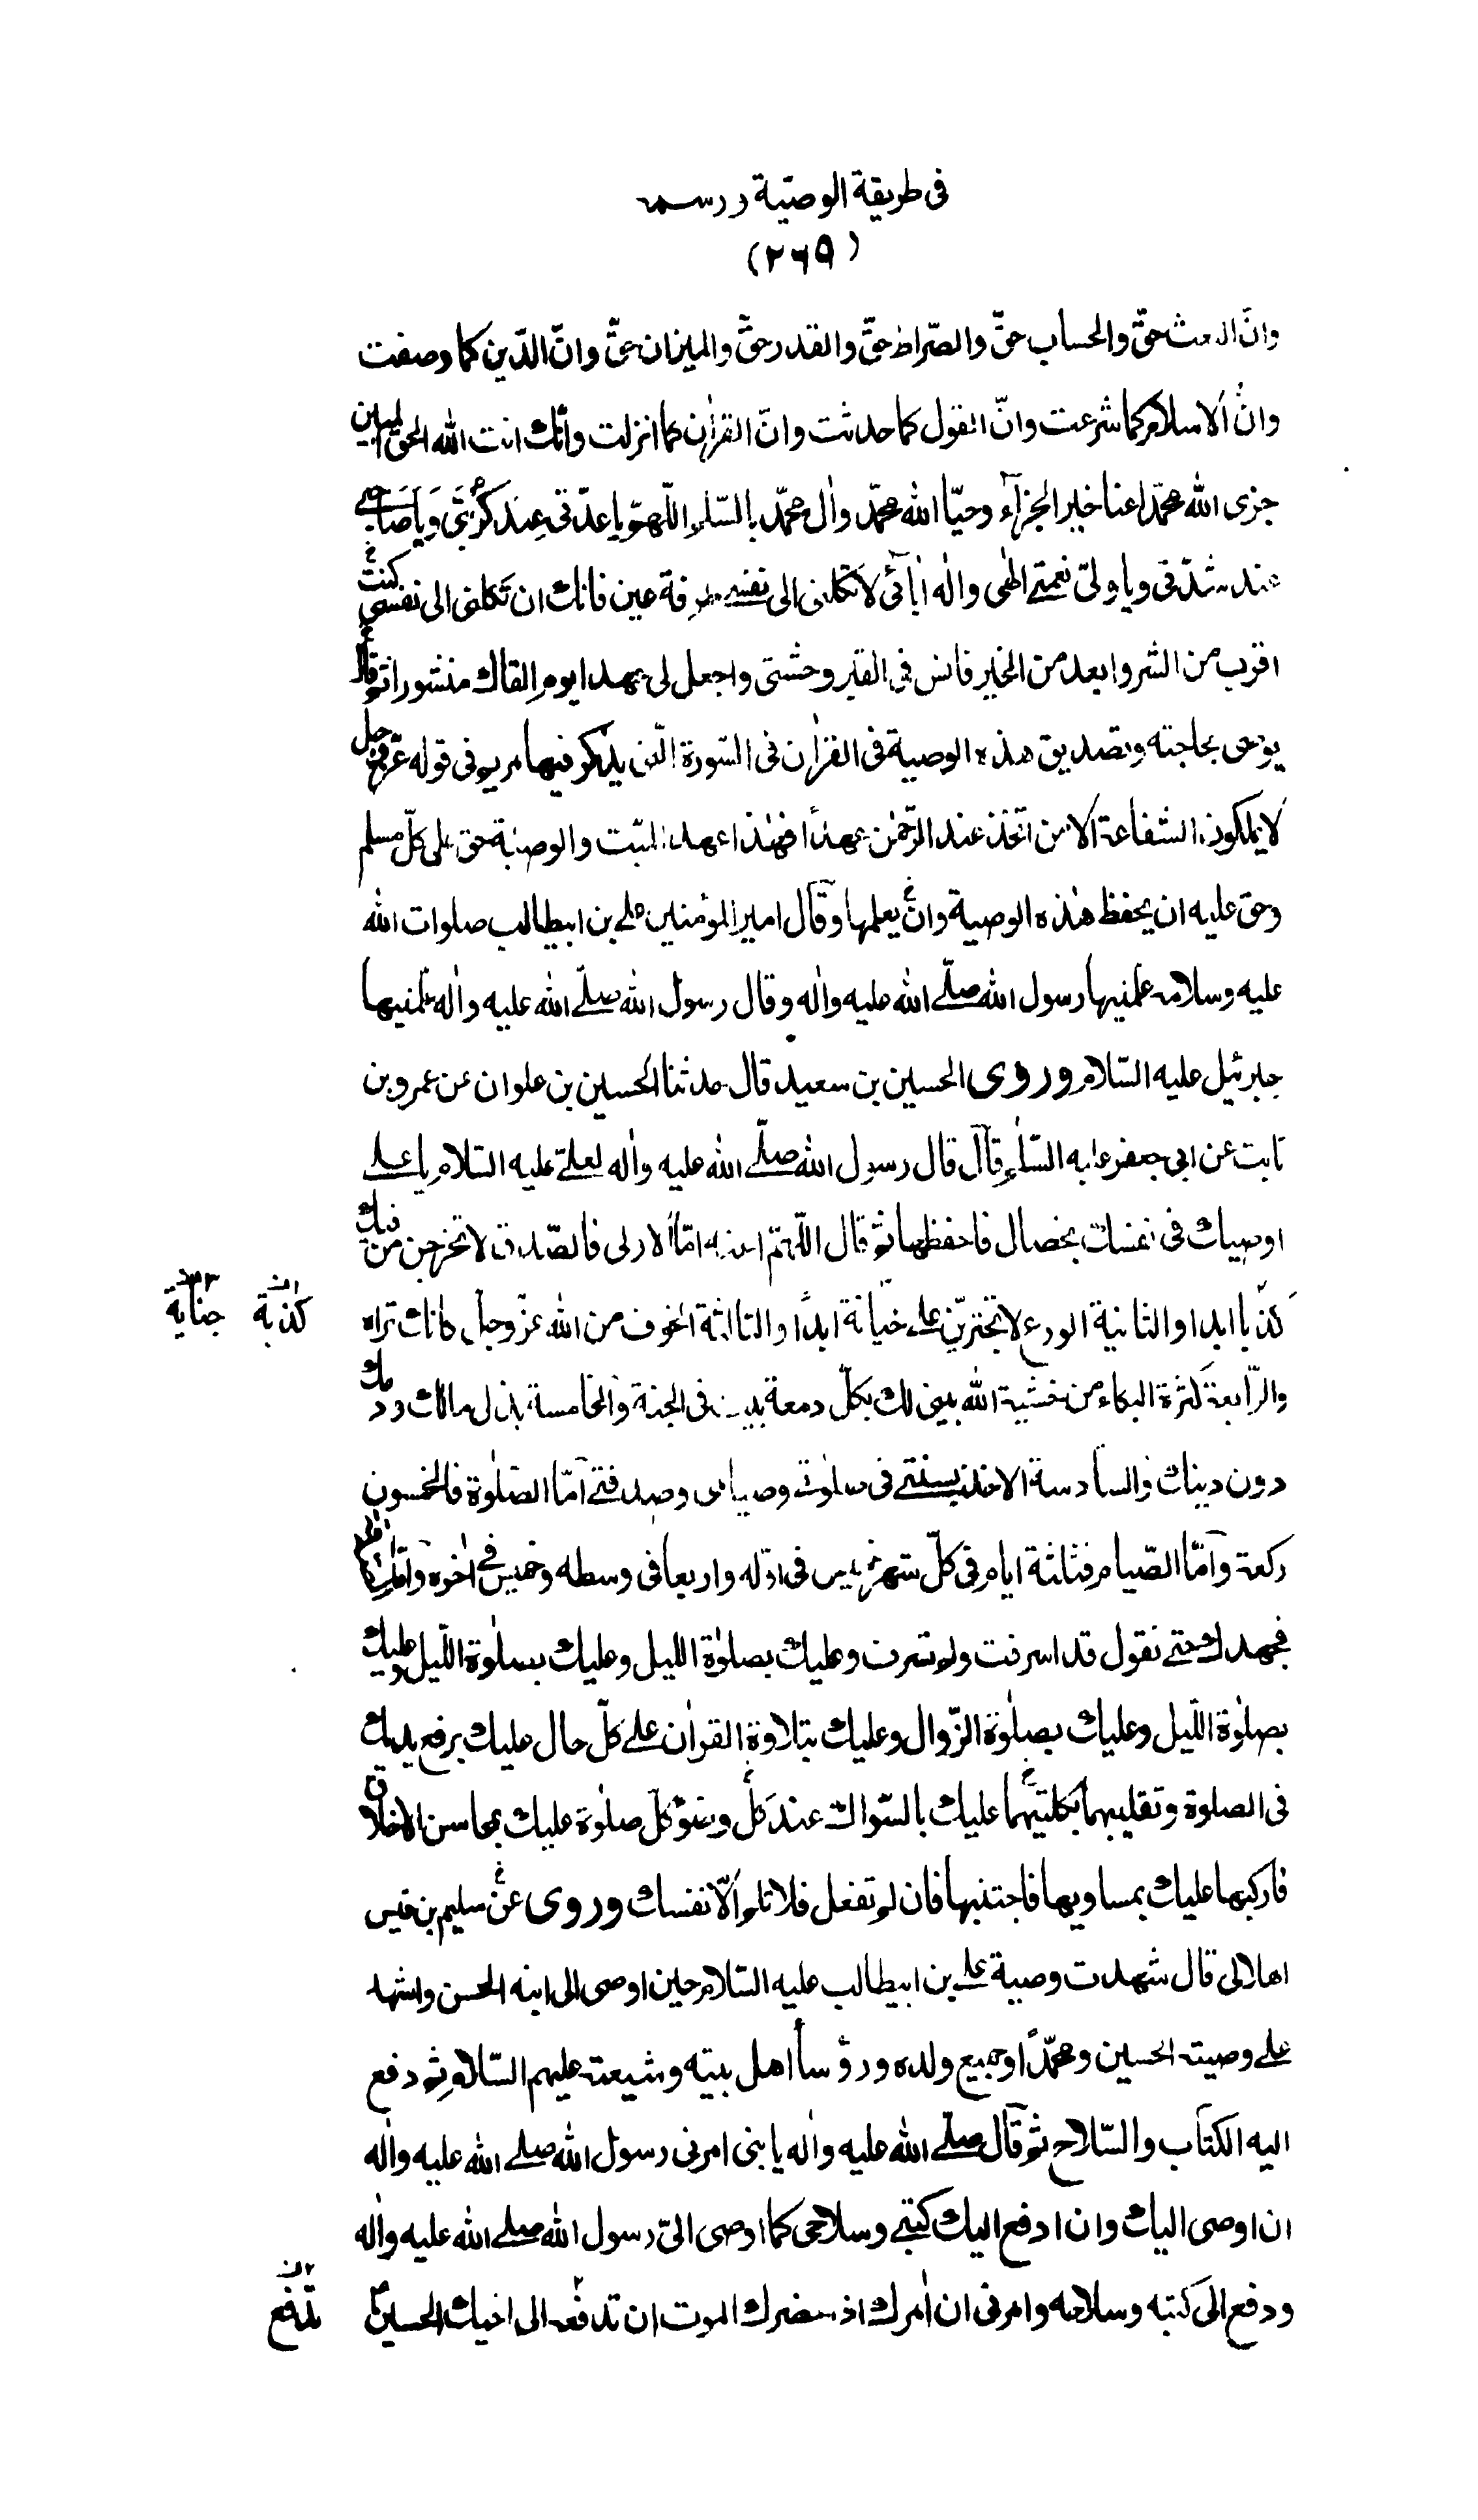 فى طريقة الوصيّة ورسمه
(٢٦٥)
وانّ البعث حقّ والحساب حقّ والصّراط حقّ والقدر حقّ والميزان حقّ وانّ الدّين كما وصفت
وانّ الاسلام كما شرعت وانّ القول كما حدثت وانّ القرٰان كما انزلت وانّك انت الله الحق المبين
جزى الله محمّدا عنا خير الجزآء وحيّا الله محمّد وٰال محمّد بالسّلم اللّهمّ يا عدّتى عِندَ كُرْبَتى وَيا صَاحبى
عند شدّتى ويا ولىّ نعمتى الٰهى واله اٰبائى لا تكلنى الى نفسى طرفة عين فانك ان تكلنى الى نفسى كنت
اقرب من الشر وابعد من الخير فانس فى القبر وحشتى واجعل لى عهدا يوم القاك منشورا ثم قال
يوصى بحاجته وتصديق هذه الوصية فى القرٰان فى السّورة الّتى يذكر فيها مريم فى قوله عزّ وجل
لا يملكون الشفاعة الا من اتّخذ عند الرّحمٰن عهدًا فهٰذا عهد الميّت والوصيّة حق على كلّ مسلم
وحق عليه ان يحفظ هٰذه الوصية وان يعلمها وقال امير المؤمنين على بن ابيطالب صلوات الله
عليه وسلامه علمنيها رسول الله صلّى الله عليه واٰله وقال رسول الله صلّى الله عليه واٰله علمنيها
جبرئيل عليه السّلام وروى الحسين بن سعيد قال حدثنا الحسين بن علوان عن عمرو بن
ثابت عن ابى جعفر عليه السّلٰم قال قال رسول الله صلّى الله عليه واٰله لعلىّ عليه السّلام يا على
اوصيك فى نفسك بخصال فاحفظها ثم قال اللّهمّ اعنه امّا الاولى فالصّدق لا تخرجن من فيك
كذبا ابدا والثانية الورع لا تجترينّ على خيانة ابدًا والثالثة الخوف من الله عزّ وجل كانك تراه
كذبة جناية
والرّابعة كثرة البكاء من خشية الله يبنى لك بكلّ دمعة بيت فى الجنة والخامسة بذل مالك ودمك
دون دينك والسادسة الاخذ بسنتى فى صلوتى وصيامى وصدقتى امّا الصّلٰوة فالخمسون
ركعة وامّا الصّيام فثلثة ايام فى كلّ شهر خميس فى اوّله واربعا فى وسطه وخميس فى اٰخره وامّا
فجهدك حتى تقول قد اسرفت ولم تسرف وعليك بصلٰوة الليل وعليك بصلٰوة اللّيل وعليك
بصلٰوة اللّيل وعليك بصلٰوة الزّوال وعليك بتلاوة القرٰان على كلّ حال عليك برفع يديك
فى الصلوة وتقليبهما بكلتيهما عليك بالسّواك عند كل وضوء كلّ صلٰوة عليك بمحاسن الاخلاق
فاركبها عليك بمساويها فاجتنبها فان لم تفعل فلا تلم الّا نفسك وروى عن سليم بن قيس
الهلالى قال شهدت وصية على بن ابيطالب عليه السّلام حين اوصى الى ابنه الحسن واشهد
على وصيته الحسين ومحمّدًا وجميع ولده ورؤسا اهل بيته وشيعته عليهم السّلام ثم دفع
اليه الكتاب والسّلاح ثم قال صلّى الله عليه واٰله يا بنى امرنى رسول الله صلى الله عليه واٰله
ان اوصى اليك وان ادفع اليك كتبى وسلاحى كما اوصى الىّ رسول الله صلى الله عليه واٰله
ودفع الى كتبه وسلاحه وامرنى ان اٰمرك اذا حضرك الموت ان تدفعه الى اخيك الحسين
تدفع